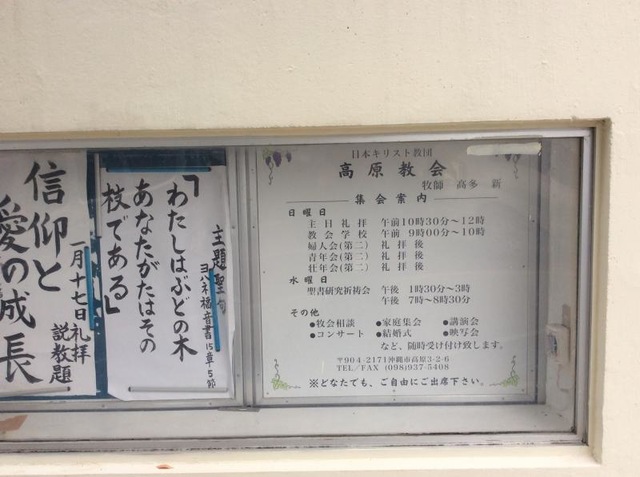 信仰と
愛の成長
一月十七日礼拝
説教題
主題聖句
ヨハネ福音書15章5節
「わたしはぶどの木
あなたがたはその
枝である」
日本キリスト教団
高原教会
牧師 高多 新
集会案内
日曜日
主日礼拝 午前10時30分〜12時
教会学校 午前 9時00分〜10時
婦人会(第二) 礼拝後
青年会(第二) 礼拝後
壮年会(第二) 礼拝後
水曜日
聖書研究祈祷会 午後 1時30分〜3時
午後 7時〜8時30分
その他
●牧会相談 ●家庭集会 ●講演会
●コンサート ●結婚式 ●映写会
など、随時受け付け致します。
〒904-2171沖縄市高原3-2-6
TEL/FAX (098)937-5408
※どなたでも、ご自由にご出席下さい。